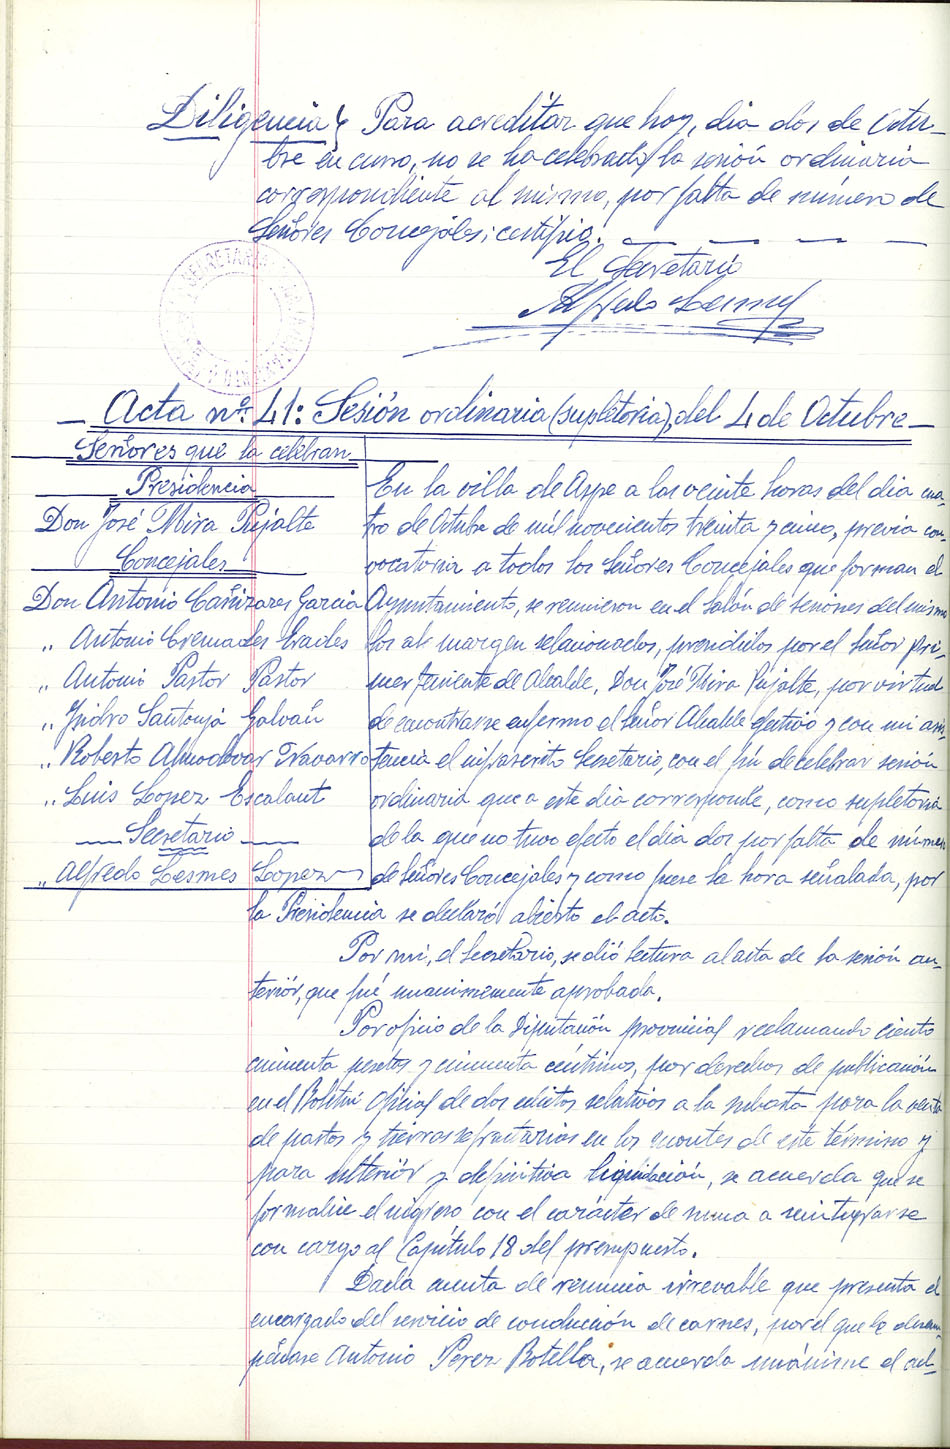 Diligencia} Para acreditar que hoy, dia dos de Octu-
bre en curso, no se ha celebrado la sesión ordinaria
correspondiente al mismo, por falta de número de
Señores Concejales; certifico.
El Secretario
Alfredo Lesmes
Acta nº. 41: Sesión ordinaria (supletoria), del 4 de Octubre
Señores que la celebran
Presidencia
Don José Mira Pujalte
Concejales
Don Antonio Cañizares Garcia
" Antonio Cremades Erades
" Antonio Pastor Pastor
" Isidro Santonja Galvañ
" Roberto Almodovar Navarro
" Luis Lopez Escalant
Secretario
" Alfredo Lesmes Lopez
En la villa de Aspe a las veinte horas del dia cua-
tro de Octubre de mil novecientos treinta y cinco, previa con-
vocatoria a todos los Señores Concejales que forman el
Ayuntamiento, se reunieron en el salón de sesiones del mismo
los al margen relacionados, presididos por el Señor Pri-
mer Teniente de Alcalde, Don José Mira Pujalte, por virtud
de encontrarse enfermo el Señor Alcalde efectivo y con mi asis-
tencia el infrascrito Secretario, con el fin de celebrar sesión
ordinaria que a este dia corresponde, como supletoria
de la que no tuvo efecto el dia dos por falta de número
de Señores Concejales y como fuese la hora señalada, por
la Presidencia se declaró abierto el acto.
Por mi, el Secretario, se dió lectura al acta de la sesión an-
terior, que fué unanimemente aprobada.
Por oficio de la Diputación provincial reclamando ciento
cincuenta pesetas y cincuenta céntimos, por derechos de publicación
en el Boletin Oficial de dos edictos relativos a la subasta para la venta
de pastos y tierras refractarias en los montes de este término y
para ulterior y definitiva liquidación, se acuerda que se
formalice el ingreso con el carácter de suma a reintegrarse
con cargo al Capitulo 18 del presupuesto.
Dada cuenta de renuncia irrevable que presenta el
encargado del servicio de conducción de carnes, por el que lo desem-
peñase Antonio Perez Botella, se acuerda unánime el